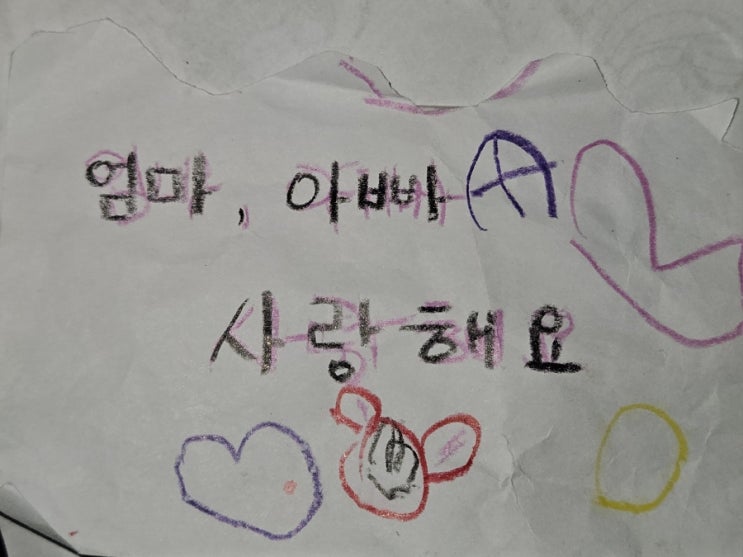 엄마, 아빠
사랑해요